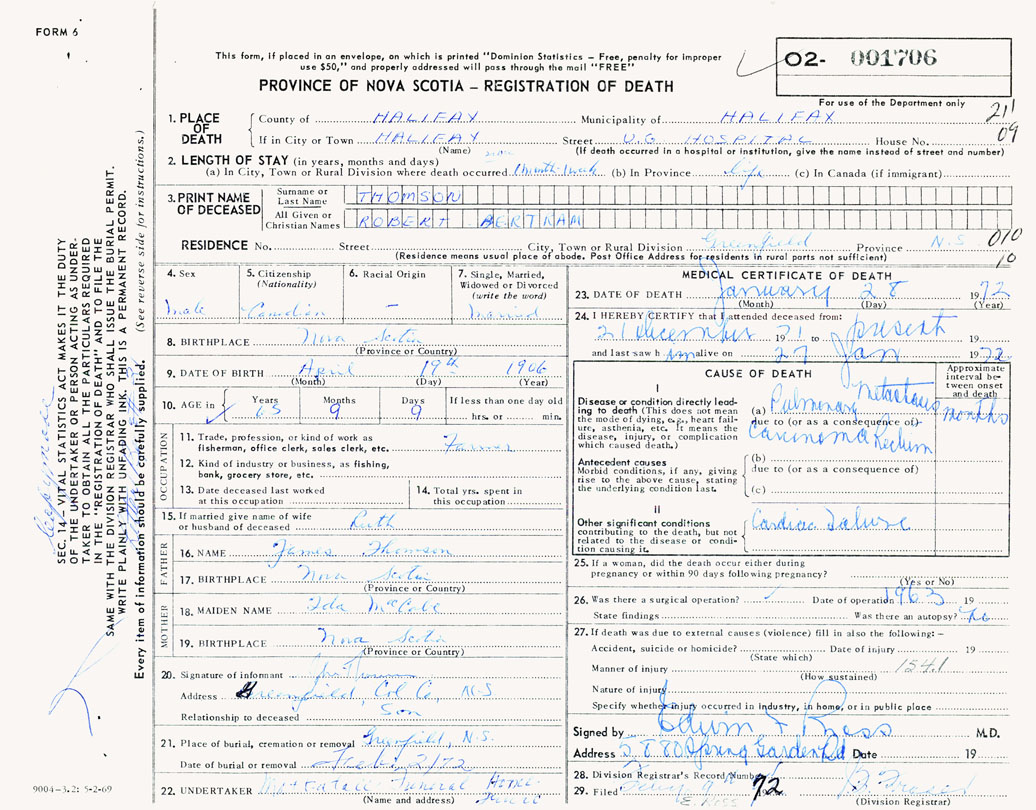 FORM 6
1
This form, if placed in an envelope, on which is printed "Dominion Statistics - Free, penalty for improper
use $50," and properly addressed will pass through the mail "FREE"
PROVINCE OF NOVA SCOTIA - REGISTRATION OF DEATH
02- 001706
For use of the Department only
211
09
1. PLACE OF DEATH
County of HALIFAX Municipality of HALIFAX
If in City or Town HALIFAX Street V.G. HOSPITAL House No.
(Name) (If death occurred in a hospital or institution, give the name instead of street and number)
2. LENGTH OF STAY (in years, months and days)
(a) In City, Town or Rural Division where death occurred 1 month 1 week (b) In Province Life (c) In Canada (if immigrant)
3. PRINT NAME OF DECEASED
Surname or Last Name THOMSON
All Given or Christian Names ROBERT BERTRAM
RESIDENCE No. Street City, Town or Rural Division Greenfield Province N.S.
010
10
(Residence means usual place of abode. Post Office Address for residents in rural parts not sufficient)
4. Sex
Male
5. Citizenship (Nationality)
Canadian
6. Racial Origin
-
7. Single, Married, Widowed or Divorced (write the word)
Married
8. BIRTHPLACE Nova Scotia
(Province or Country)
9. DATE OF BIRTH April 19th 1906
(Month) (Day) (Year)
10. AGE in Years Months Days If less than one day old
65 9 9 hrs. or min.
OCCUPATION
11. Trade, profession, or kind of work as
fisherman, office clerk, sales clerk, etc. Farmer
12. Kind of industry or business, as fishing,
bank, grocery store, etc.
13. Date deceased last worked
at this occupation
14. Total yrs. spent in
this occupation
15. If married give name of wife
or husband of deceased Ruth
FATHER
16. NAME James Thomson
17. BIRTHPLACE Nova Scotia
MOTHER
18. MAIDEN NAME Ida
19. BIRTHPLACE Nova Scotia
(Province or Country)
20. Signature of informant
Address Greenfield, Col. Co., N.S
Relationship to deceased Son
21. Place of burial, cremation or removal Greenfield, N.S.
Date of burial or removal Feb. 2/72
22. UNDERTAKER Funeral Home
(Name and address)
MEDICAL CERTIFICATE OF DEATH
23. DATE OF DEATH January 28 1972
(Month) (Day) (Year)
24. I HEREBY CERTIFY that I attended deceased from:
21 December 1971 to present 19
and last saw him alive on 27 Jan 1972
CAUSE OF DEATH
Approximate interval between onset and death
I
Disease or condition directly leading
to death (This does not mean
the mode of dying, e.g., heart failure,
asthenia, etc. It means the
disease, injury, or complication
which caused death.)
(a) Pulmonary Metastasis months
due to (or as a consequence of)
Carcinoma Rectum
Antecedent causes
Morbid conditions, if any, giving
rise to the above cause, stating
the underlying condition last.
(b)
due to (or as a consequence of)
(c)
II
Other significant conditions
contributing to the death, but not
related to the disease or condition
causing it.
Cardiac Failure
25. If a woman, did the death occur either during
pregnancy or within 90 days following pregnancy?
(Yes or No)
26. Was there a surgical operation? Date of operation 1963 19
State findings Was there an autopsy? No
27. If death was due to external causes (violence) fill in also the following: -
Accident, suicide or homicide? Date of injury 19
(State which)
Manner of injury 154.1
(How sustained)
Nature of injury
Specify whether injury occurred in industry, in home, or in public place
Signed by Edwin F Ross M.D.
Address 5880 Spring Garden Rd Date 19
28. Division Registrar's Record Number
29. Filed 9 1972
E. Ross
(Division Registrar)
SEC. 14 - VITAL STATISTICS ACT MAKES IT THE DUTY
OF THE UNDERTAKER OR PERSON ACTING AS UNDERTAKER
TO OBTAIN ALL THE PARTICULARS REQUIRED
IN THE "REGISTRATION OF DEATH" AND TO FILE THE
SAME WITH THE DIVISION REGISTRAR WHO SHALL ISSUE THE BURIAL PERMIT.
WRITE PLAINLY WITH UNFADING INK. THIS IS A PERMANENT RECORD.
Every item of information should be carefully supplied. (See reverse side for instructions.)
9004-3.2: 5-2-69